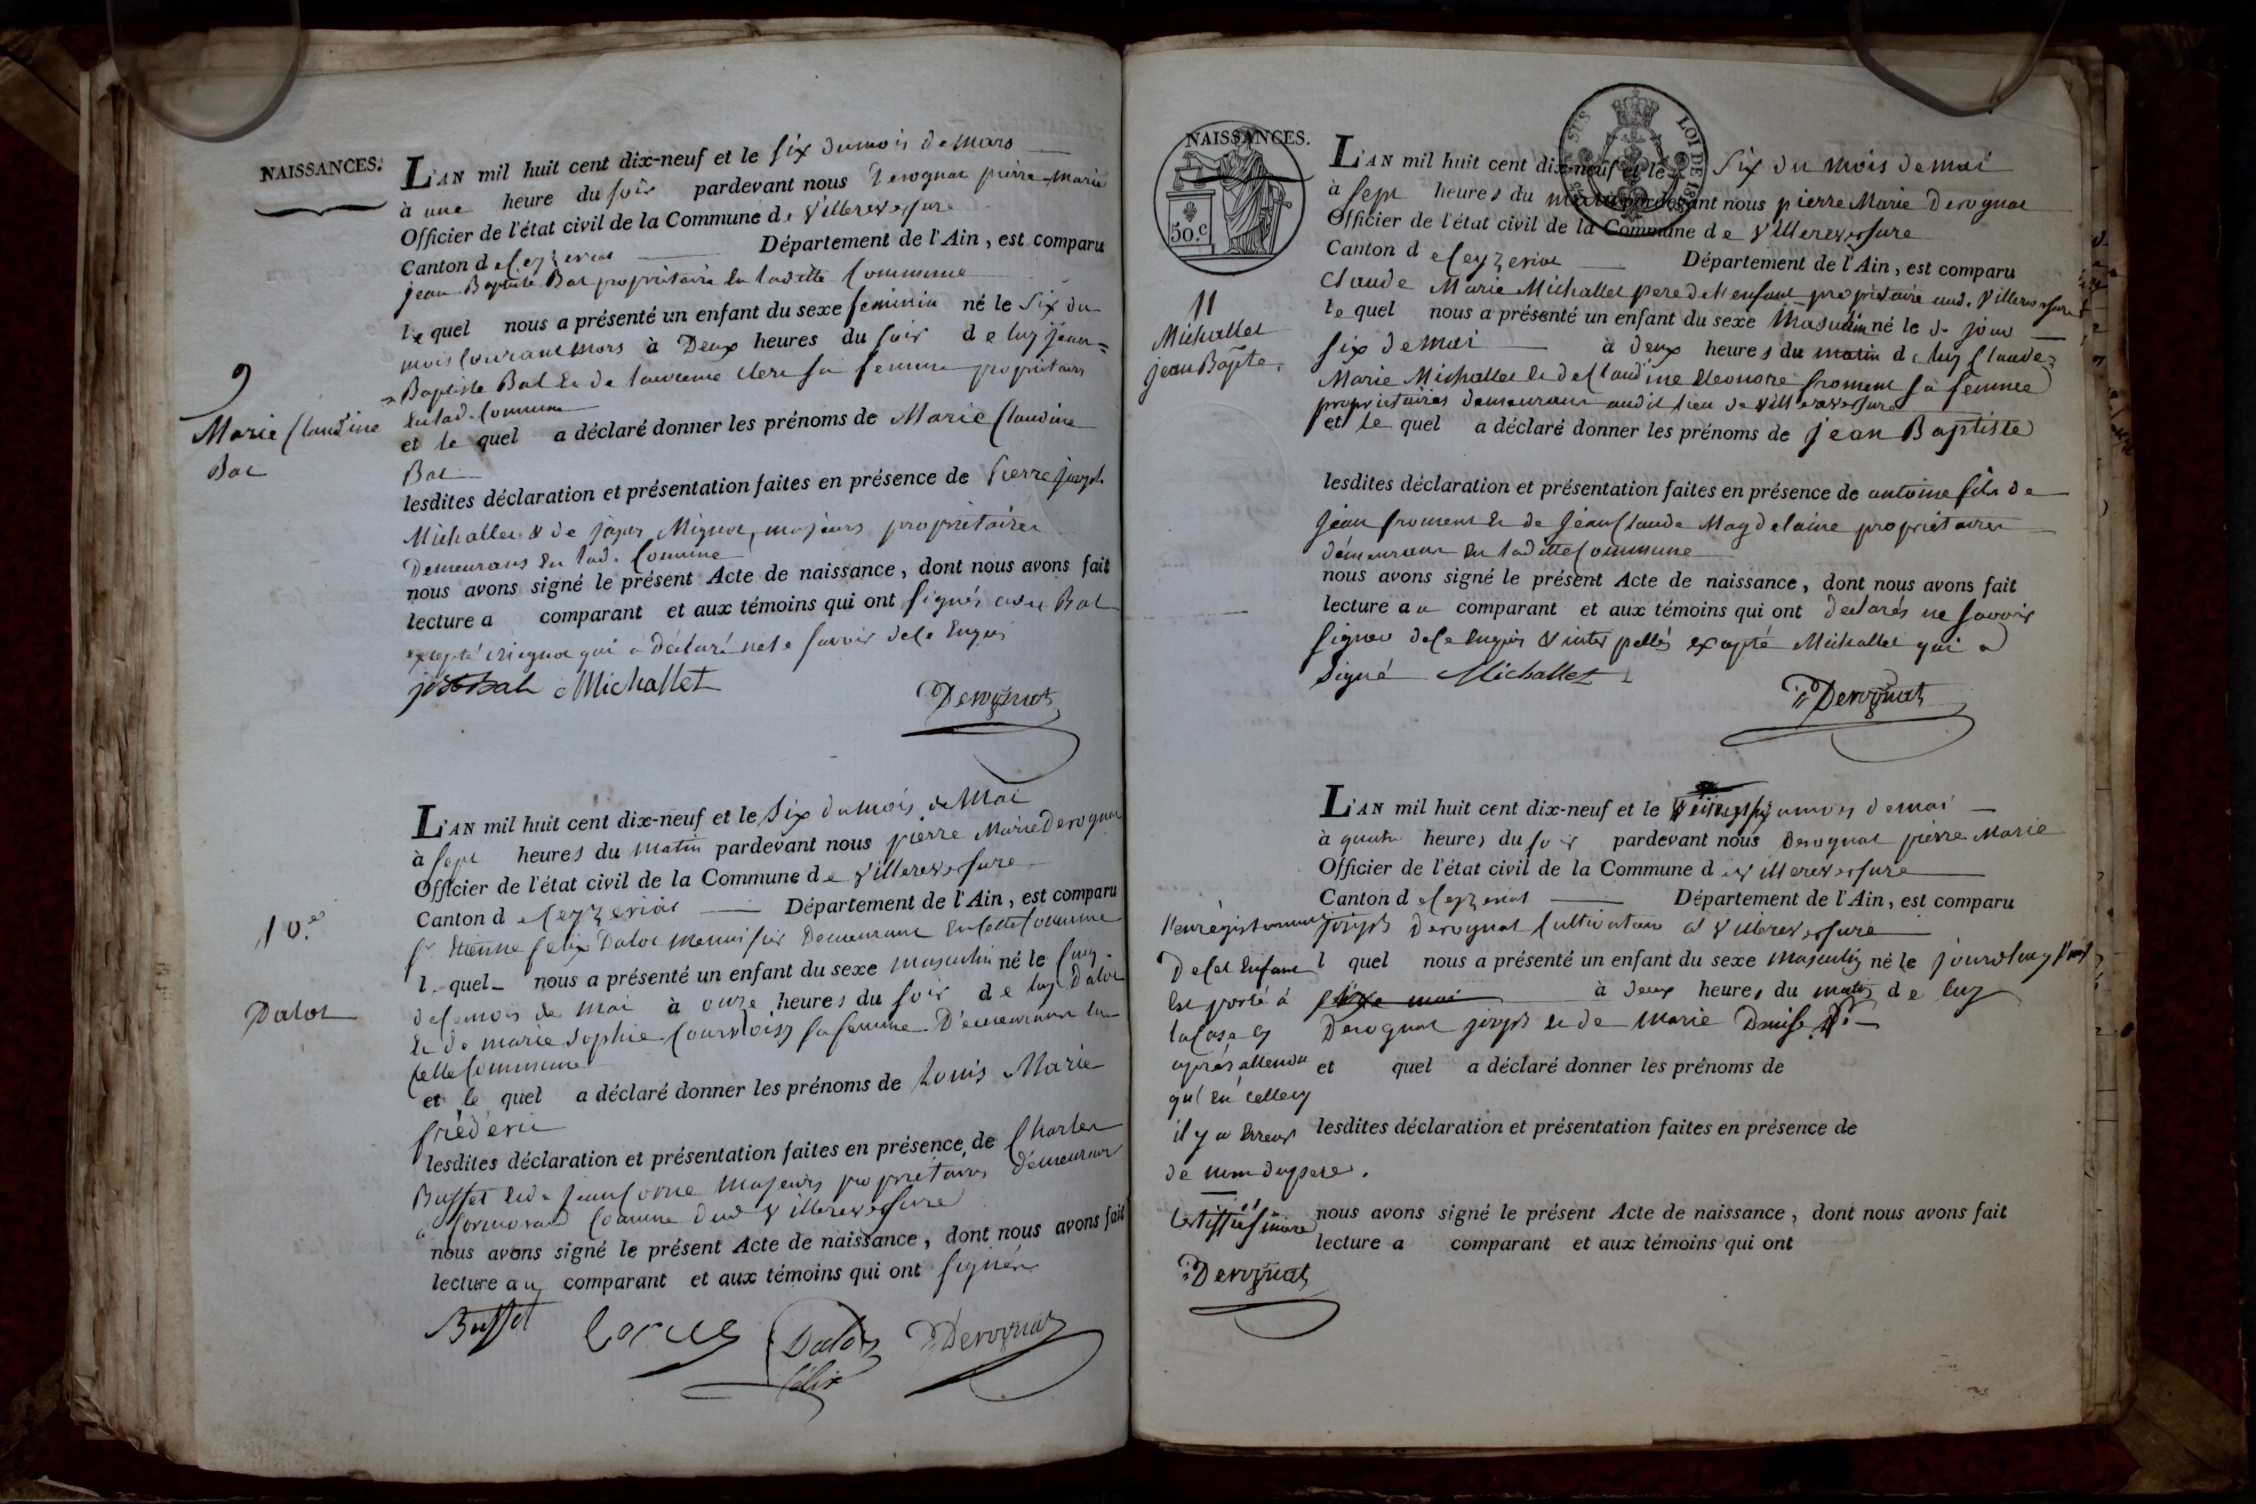 NAISSANCES.
L'AN mil huit cent dix-neuf et le six du mois de mars
à une heure du soir pardevant nous Derognat pierre Marie
Officier de l'état civil de la Commune de Villereversure
Canton de Ceyzeriat Département de l'Ain, est comparu
jean Baptiste Bal propriétaire en laditte Commune
le quel nous a présenté un enfant du sexe feminin né le six du
mois Courant mars à Deux heures du soir de luy jean=
=Baptiste Bal et de Clere sa femme propriétaires
en lad. Commune
9
Marie Claudine
Bal
et le quel a déclaré donner les prénoms de Marie Claudine
Bal
lesdites déclaration et présentation faites en présence de Pierre joseph
Michallet & de Mignot, majeurs propriétaires
Demeurans en lad. Commune
nous avons signé le présent Acte de naissance, dont nous avons fait
lecture a comparant et aux témoins qui ont signés avec Bal
excepté Mignot qui a Déclaré ne le savoir de ce Enquis
Bal Michallet
Derognat
L'AN mil huit cent dix-neuf et le Six du mois de Mai
à sept heures du matin pardevant nous pierre Marie Derognat
Officier de l'état civil de la Commune de Villereversure
Canton de Ceyzeriat Département de l'Ain, est comparu
10.e
Sr Etienne felix Dalot Menuisier Demeurant en cette Commune
l quel nous a présenté un enfant du sexe masculin né le Cinq
de ce mois de mai à onze heures du soir de luy Dalot
Dalot
et de marie Sophie Courtois sa femme Demeurant en
cette Commune
et le quel a déclaré donner les prénoms de Louis Marie
fréderic
lesdites déclaration et présentation faites en présence de Charles
Buffet et de jean Corne majeurs propriétaires démeurant
à Commune dud Villereversure
nous avons signé le présent Acte de naissance, dont nous avons fait
lecture au comparant et aux témoins qui ont signés
Buffet Corne Dalot Derognat
félix
NAISSANCES.
50.c
LOI DE 18
L'AN mil huit cent dix-neuf et le Six du mois de mai
à sept heures du matin pardevant nous pierre Marie Derognat
Officier de l'état civil de la Commune de Villereversure
Canton de Ceyzeriat Département de l'Ain, est comparu
Claude Marie Michallet pere de l'enfant propriétaire aud. Villereversure
11
Michallet
jean Bapte.
le quel nous a présenté un enfant du sexe Masculin né le d. jour
six de mai à deux heures du matin de luy Claude=
Marie Michallet et de Claudine Eleonore froment sa femme
propriétaires demeurans audit lieu de Villereversure
et le quel a déclaré donner les prénoms de jean Baptiste
lesdites déclaration et présentation faites en présence de antoine fils de
jean froment et de jean Claude Magdelaine propriétaires
démeurans en laditte Commune
nous avons signé le présent Acte de naissance, dont nous avons fait
lecture au comparant et aux témoins qui ont declarés ne savoir
signer de ce enquis & interpellés excepté Michallet qui a
signé Michallet
Derognat
L'AN mil huit cent dix-neuf et le du mois de mai
à quatre heures du soir pardevant nous Derognat pierre Marie
Officier de l'état civil de la Commune de Villereversure
Canton de Ceyzeriat Département de l'Ain, est comparu
joseph Derognat Cultivateur à Villereversure
l quel nous a présenté un enfant du sexe masculin né le jourd'huy
mai à deux heures du matin de luy
Derognat joseph et de Marie Denise
et quel a déclaré donner les prénoms de
lesdites déclaration et présentation faites en présence de
nous avons signé le présent Acte de naissance, dont nous avons fait
lecture a comparant et aux témoins qui ont
l'enrégistrement
de cet Enfant
est porté à
la Case cy
après attendu
qu'en celle cy
il y a Erreur
de nom du pere.
Certiffié sincere
Derognat